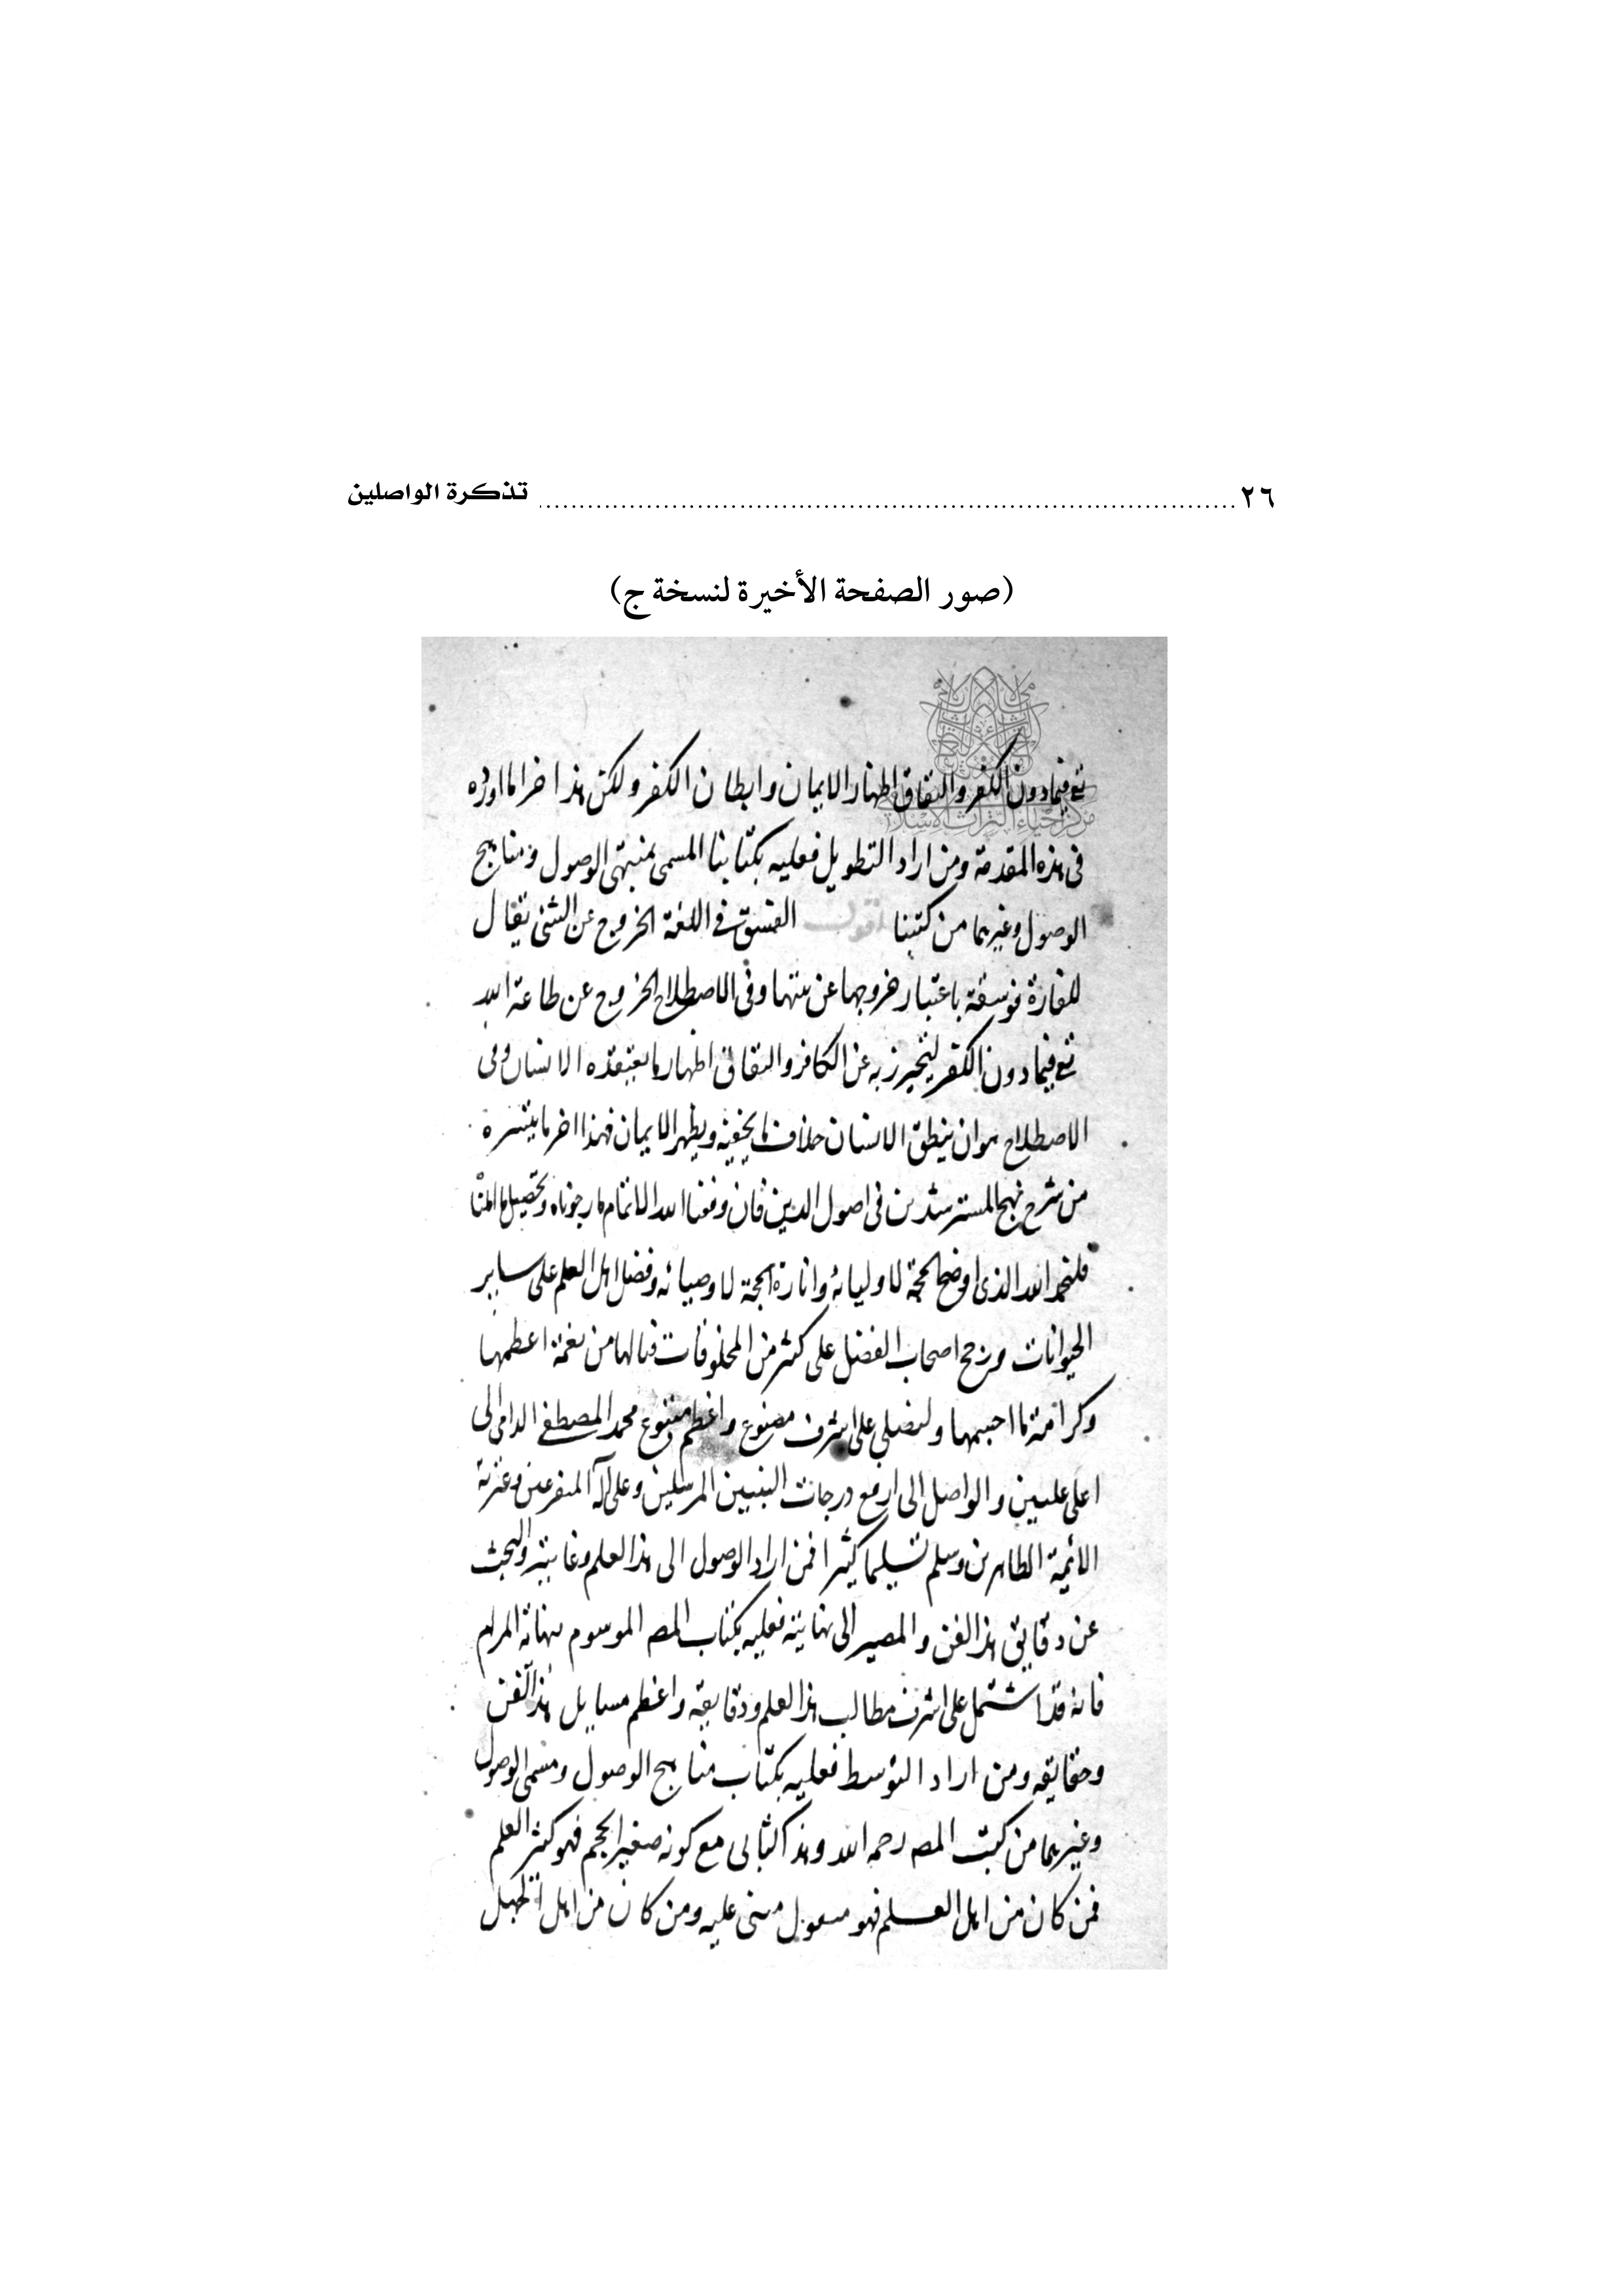 ٢٦ ........ تذكرة الواصلين
(صور الصفحة الأخيرة لنسخة ج)
مركز احياء التراث الاسلامي
تع فيما دون الكفر والنفاق اظهار الايمان وابطان الكفر ولكن هذا اخر ما اورده
فى هذه المقدمة ومن اراد التطويل فعليه بكتابنا المسمى بمنتهى الوصول ومناهج
الوصول وغيرهما من كتبنا اقول الفسق فى اللغة الخروج عن الشئ يقال
للفارة فويسقة باعتبار خروجها عن بيتها وفى الاصطلاح الخروج عن طاعة الله
تع فيما دون الكفر ليتحرز به عن الكافر والنفاق اظهار ما يعتقده الانسان وفى
الاصطلاح هو ان ينطق الانسان خلاف ما يخفيه ويظهر الايمان فهذا اخر ما
من شرح نهج المسترشدين فى اصول الدين فان وفقنا الله لاتمام ما رجوناه وتحصيل ما
فلنحمد الله الذى اوضح المحجة لاوليائه وانارة الحجة لاوصيائه وفضل اهل العلم على ساير
الحيوانات ورجح اصحاب الفضل على كثير من المخلوقات فيا لها من نعمة اعظمها
وكرامة ما احسنها ولنصلى على اشرف مصنوع واعظم متبوع محمد المصطفى الداعى الى
اعلى عليين والواصل الى ارفع درجات النبيين المرسلين وعلى آله وعترته
الائمة الطاهرين وسلم تسليما كثيرا فمن اراد الوصول الى هذا العلم وغايته والبحث
عن دقايق هذا الفن والمصير الى نهايته فعليه بكتاب المصـ الموسوم بنهاية المرام
فانه قد اشتمل على اشرف مطالب هذا العلم ودقايقه واعظم مسايل هذا الفن
وحقايقه ومن اراد التوسط فعليه بكتاب مناهج الوصول ومنتهى الوصول
وغيرهما من كتب المصـ رحمه الله وهذا الكتاب مع كونه صغير الحجم فهو كثير العلم
فمن كان من اهل العلم فهو عليه ومن كان من اهل الجهل